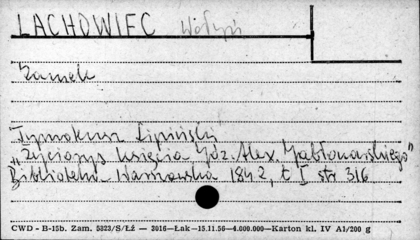 LACHOWIEC Wołyń
Zamek
Tymoteusz Lipiński
„Życiorys księcia Józ. Alex. Jabłonowskiego"
Biblioteka Warszawska 1842, t I str 316
CWD - B-15b. Zam. 5323/S/Łź — 3016—Łak—15.11.56—4.000.000—Karton kl. IV A1/200 g